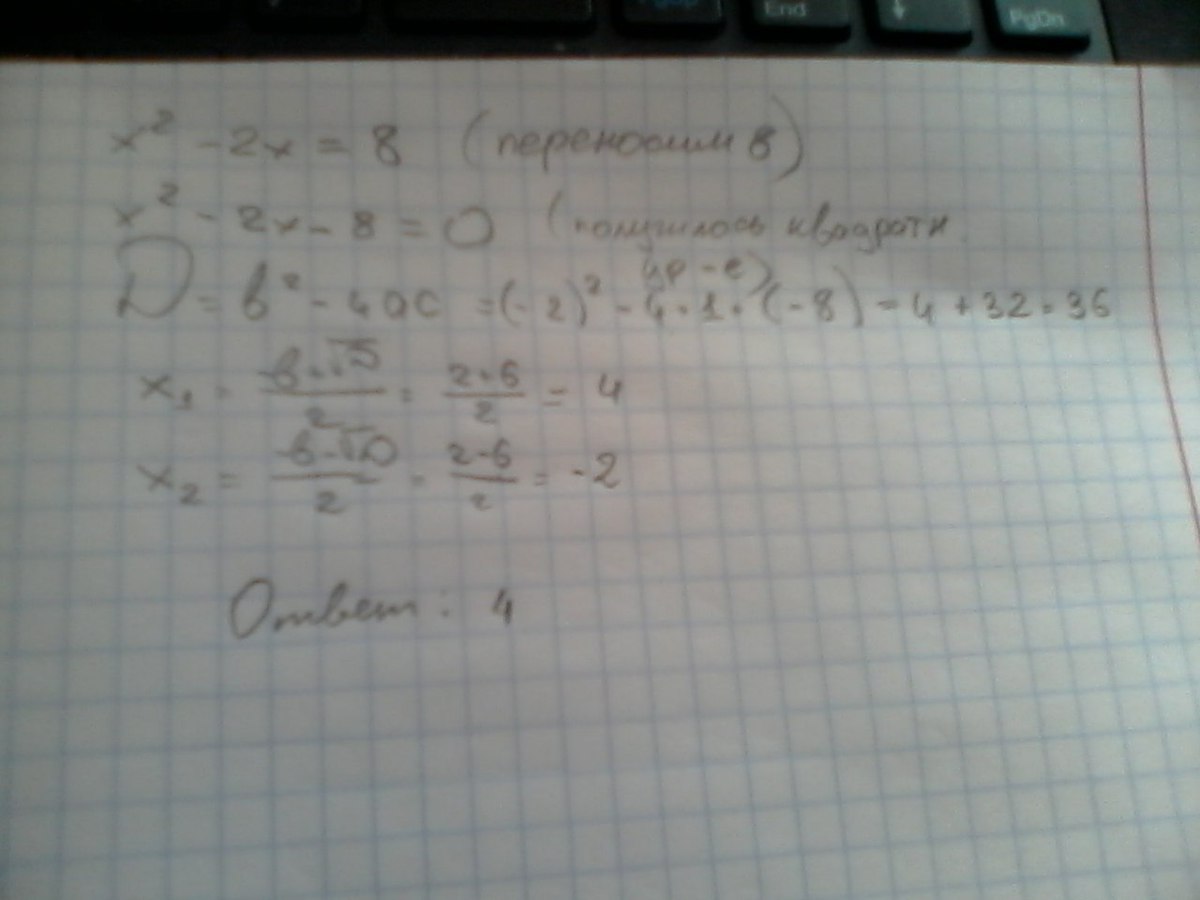 End
↓
PgDn
x² - 2x = 8 (переносим 8)
x² - 2x - 8 = 0 (получилось квадратн.
ур-е)
D = b² - 4ac = (-2)² - 4·1·(-8) = 4 + 32 = 36
x₁ = (-b+√D)/2 = (2+6)/2 = 4
x₂ = (-b-√D)/2 = (2-6)/2 = -2
Ответ: 4